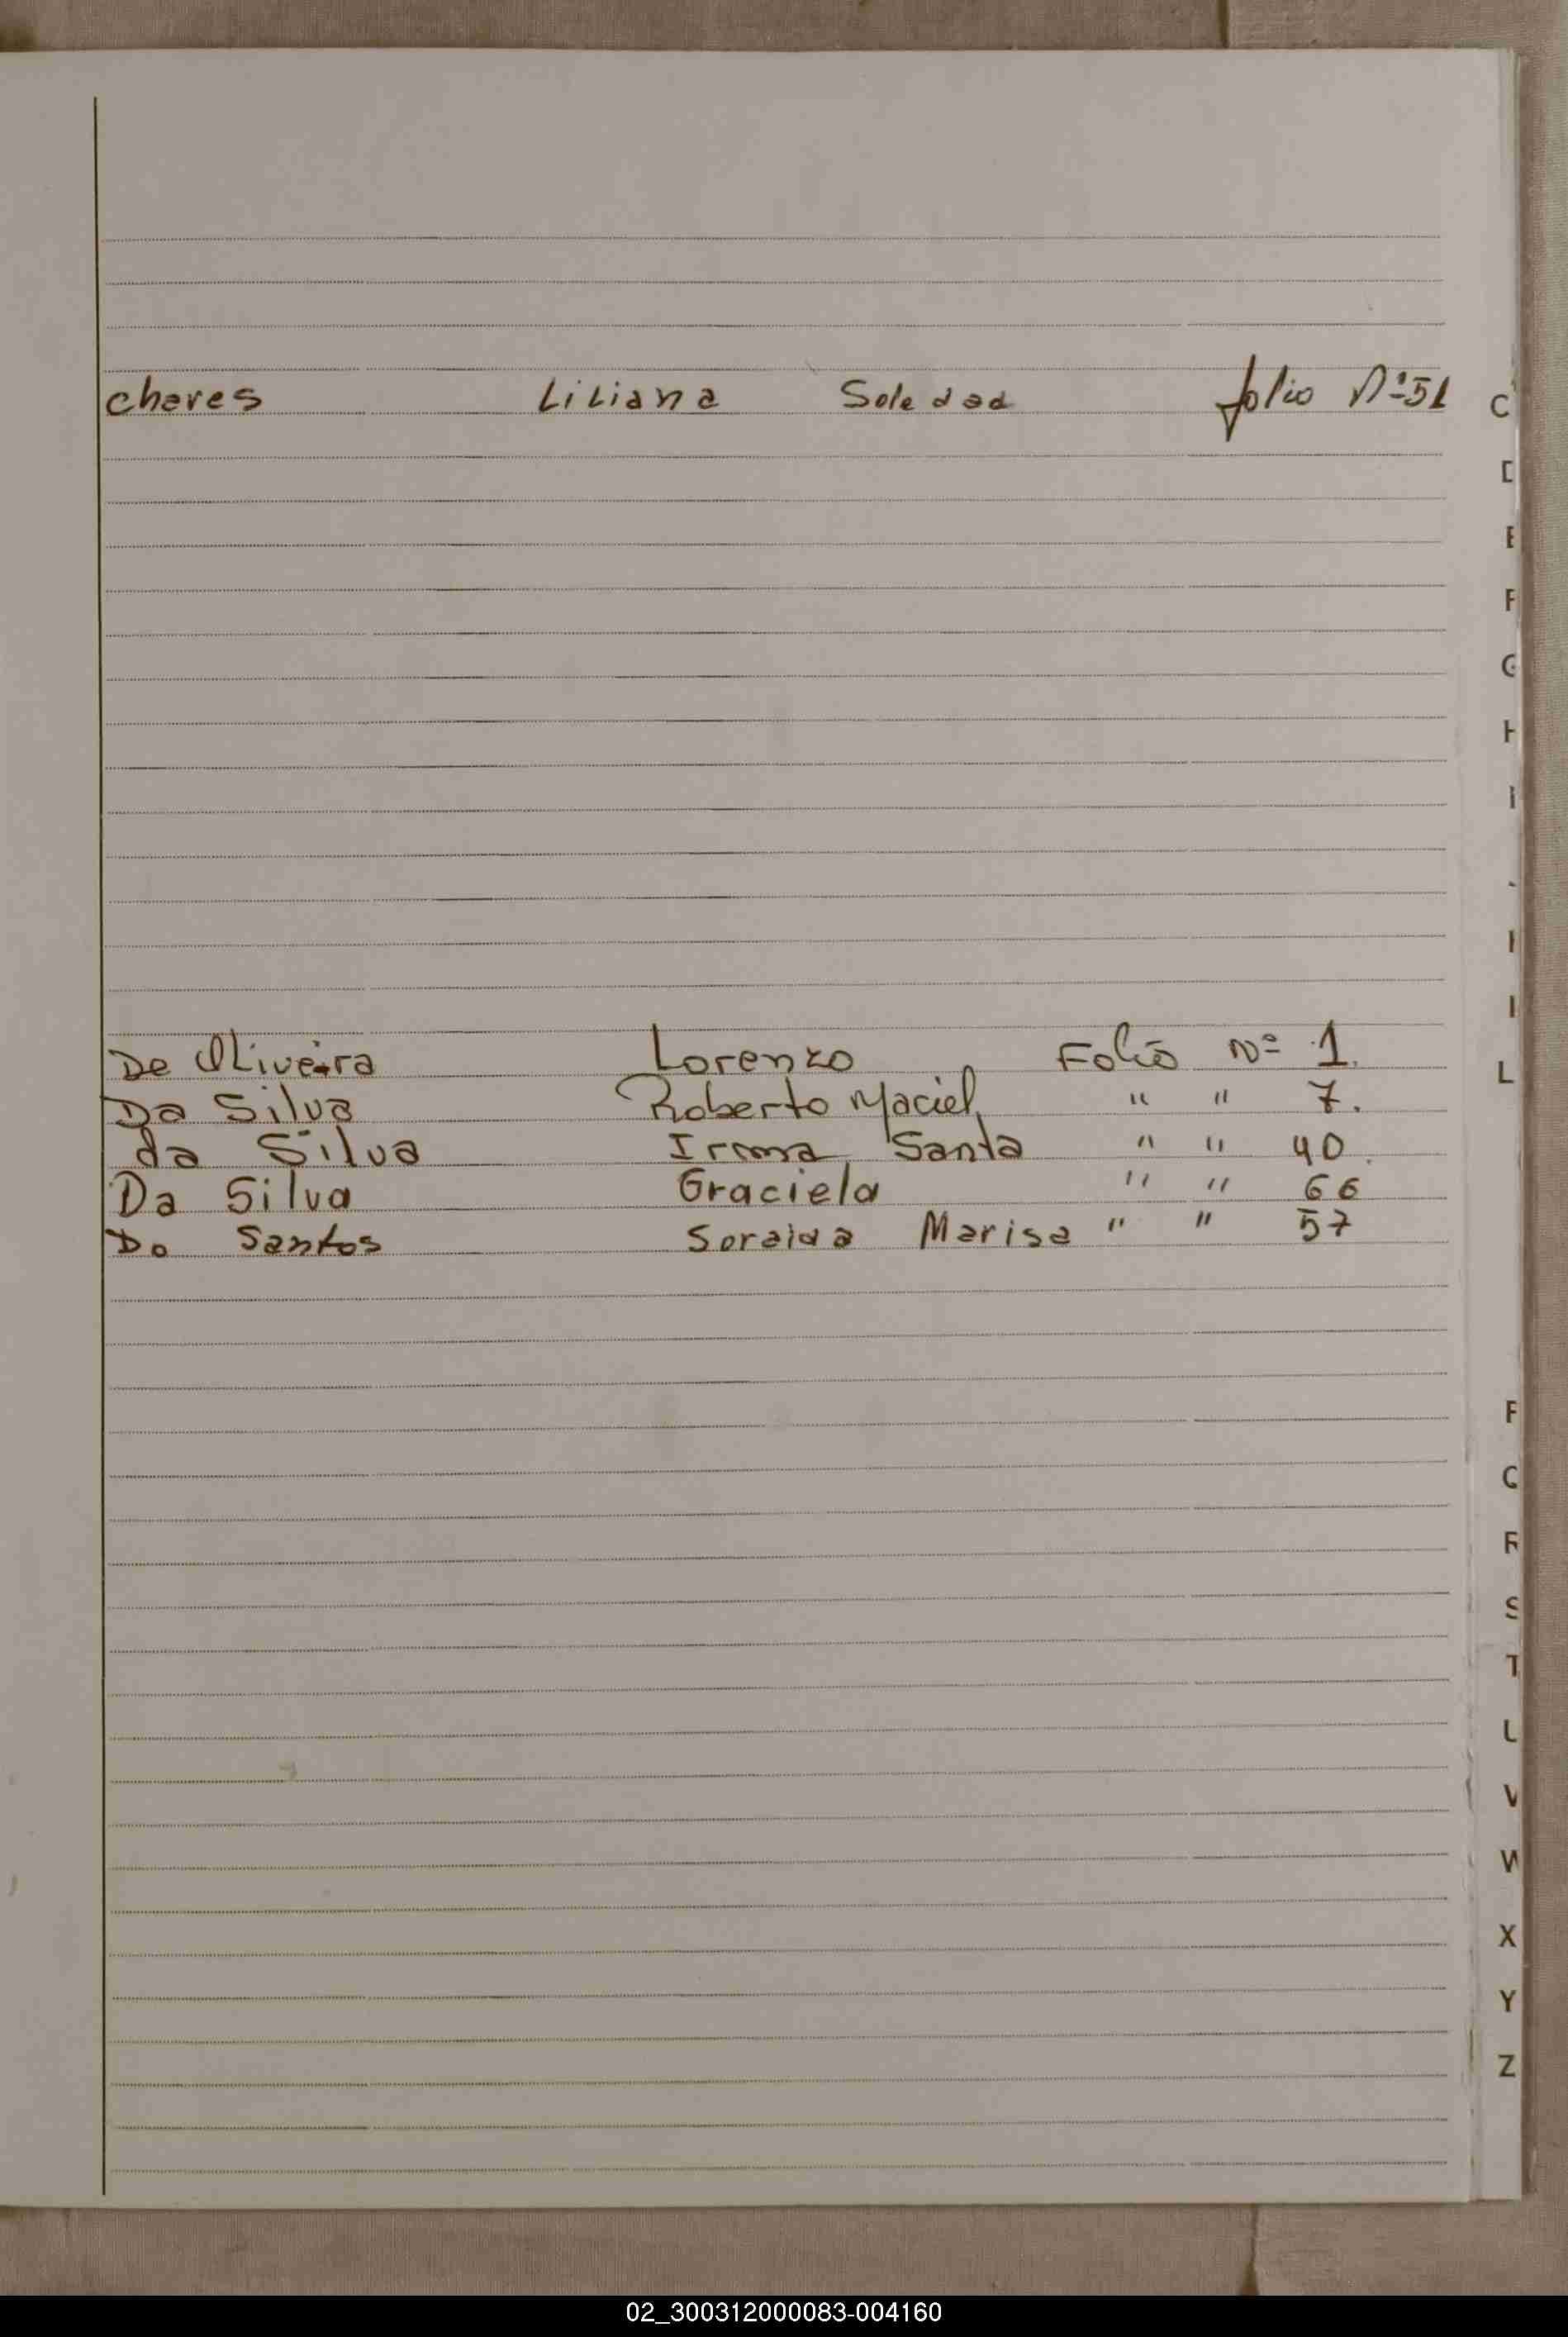 Chaves Liliana Soledad folio Nº 51
C
D
E
F
G
H
I
De Oliveira Lorenzo Folio Nº 1.
L
Da Silva Roberto Maciel " " 7.
da Silva Irma Santa " " 40.
Da Silva Graciela " " 66
Do Santos Soraida Marisa " " 57
P
Q
R
S
T
U
V
W
X
Y
Z
02_300312000083-004160